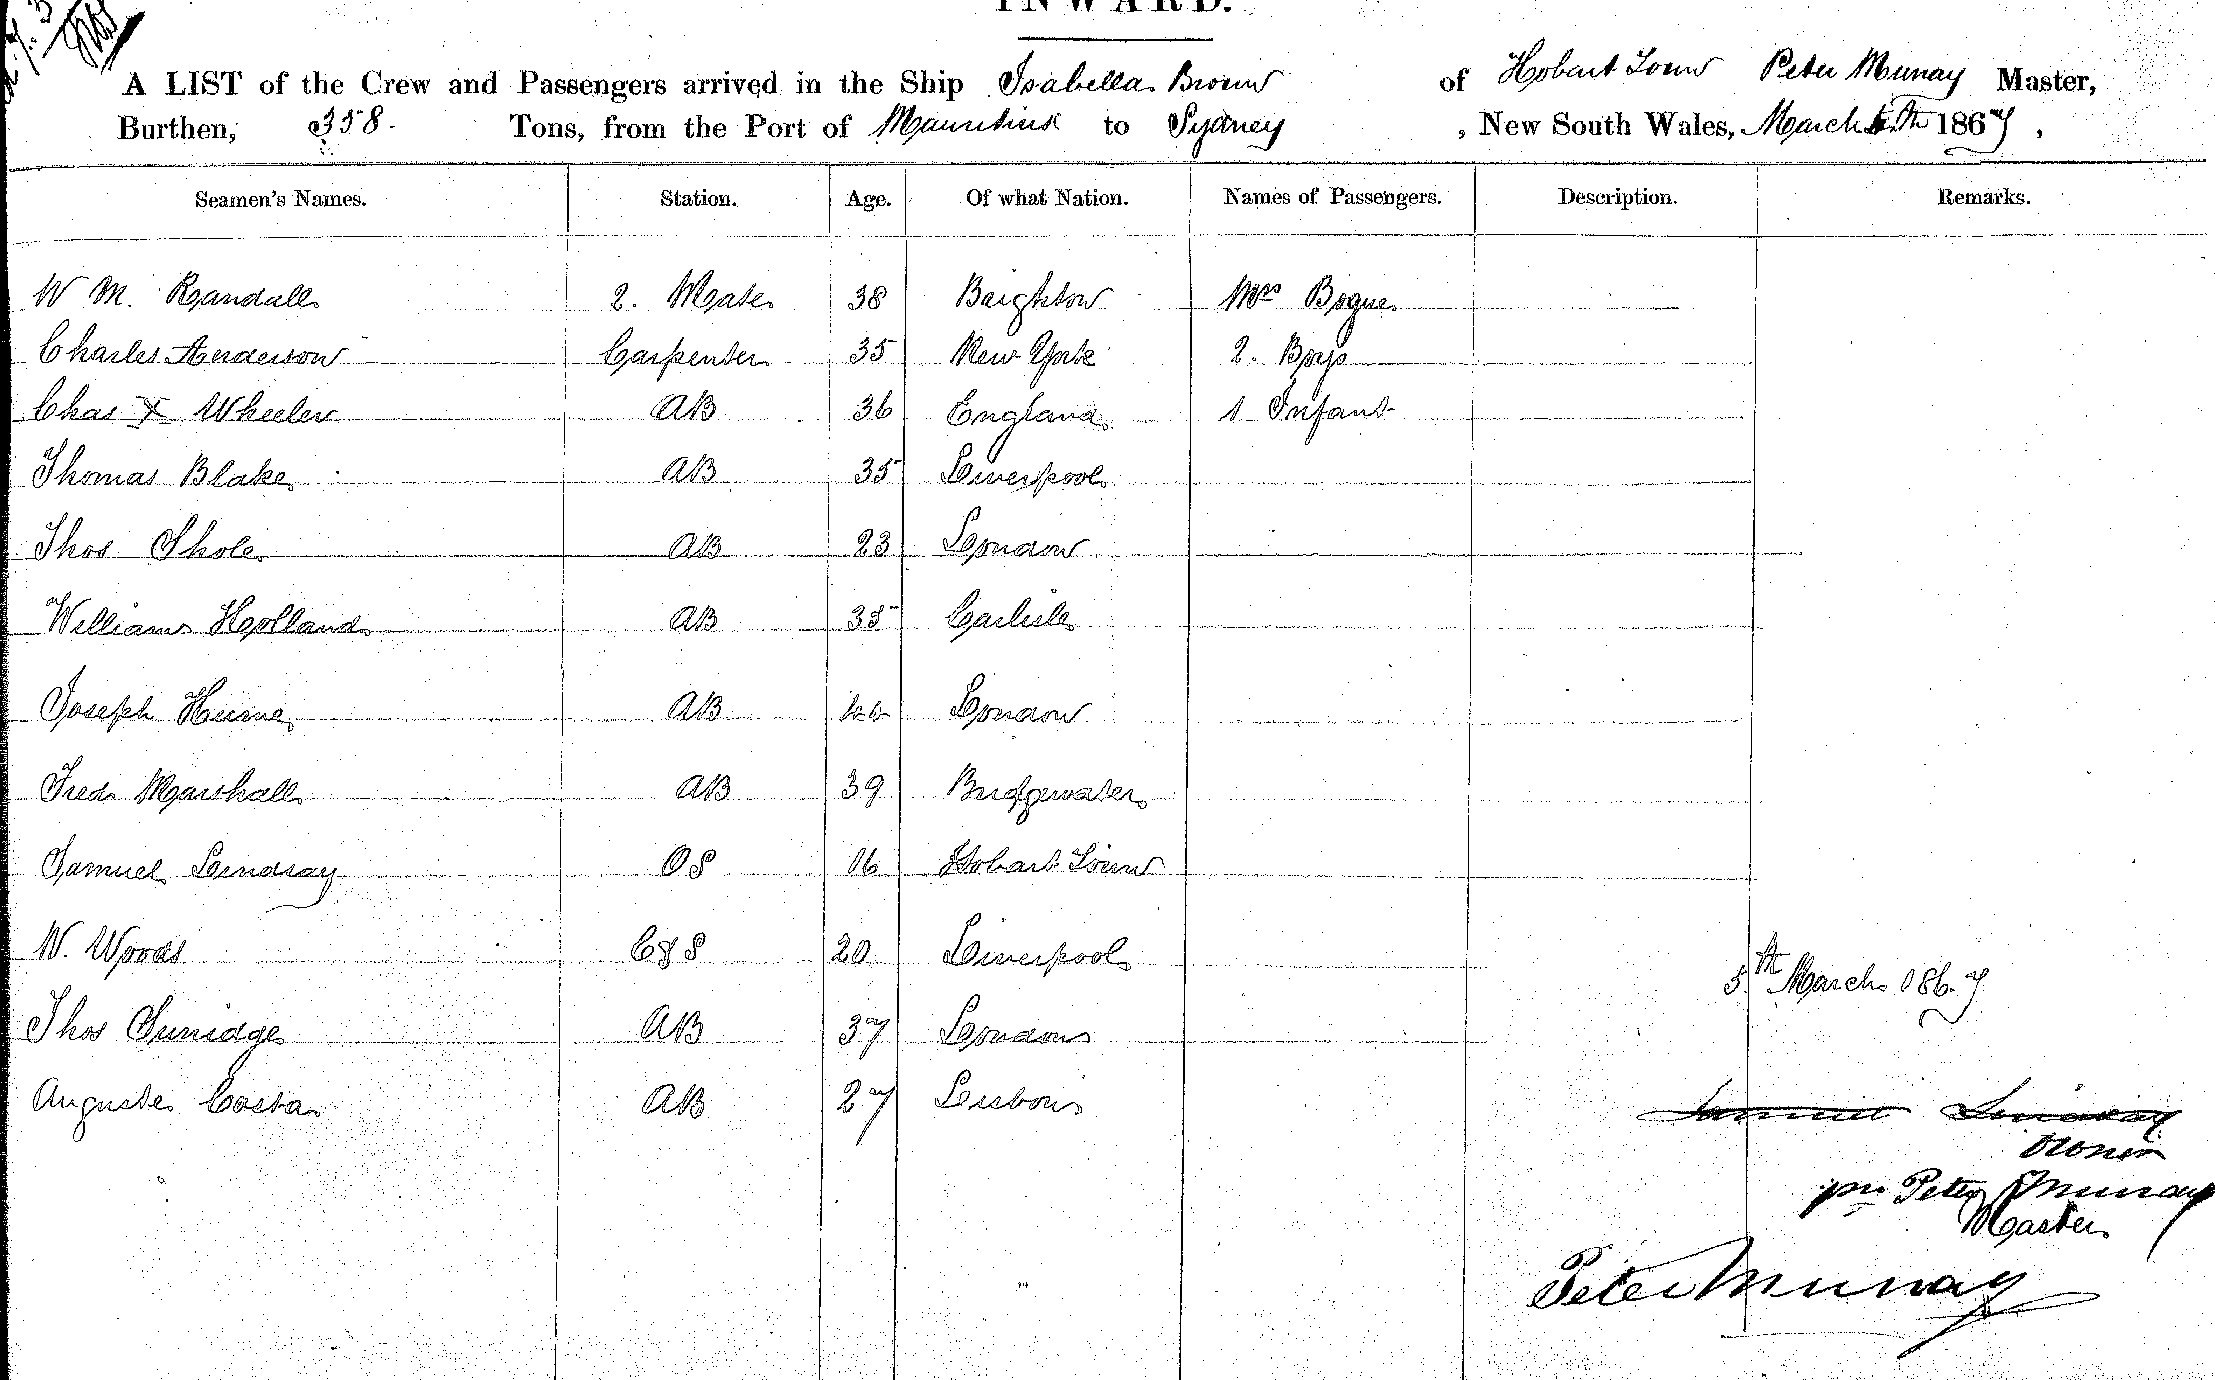 INWARD.
A LIST of the Crew and Passengers arrived in the Ship Isabella Brown of Hobart Town Peter Murray Master,
Burthen, 358. Tons, from the Port of Mauritius to Sydney , New South Wales, March 5th 1867 ,
Seamen's Names. Station. Age. Of what Nation. Names of Passengers. Description. Remarks.
W M. Randall 2. Mate 38 Brighton Mrs Bogue
Charles Anderson Carpenter 35 New York 2. Boys
Chas X Wheeler AB 36 England 1 Infant
Thomas Blake AB 35 Liverpool
Thos Shole AB 23 London
William Holland AB 35 Carlisle
Joseph Hume AB 44 London
Fred Marshall AB 39 Bridgewater
Samuel Lindsay OS 16 Hobart Town
W. Woods C&S 20 Liverpool
5th March 1867
Thos Surridge AB 37 London
Auguste Costa AB 27 Lisbon
Samuel Lindsay
Owner
pr Peter Murray
Master
Peter Murray